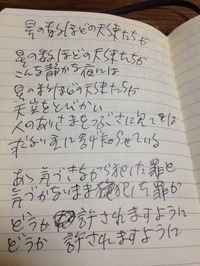 星の数ほどの天使たちが
星の数ほどの天使たちが
こんな静かな夜には
星の数ほどの天使たちが
天空をとびかい
人のありさまをつぶさに見ては
神に知らせている
ああ 気づきながら犯した罪と
気づかないまま犯した罪が
どうか 許されますように
どうか 許されますように